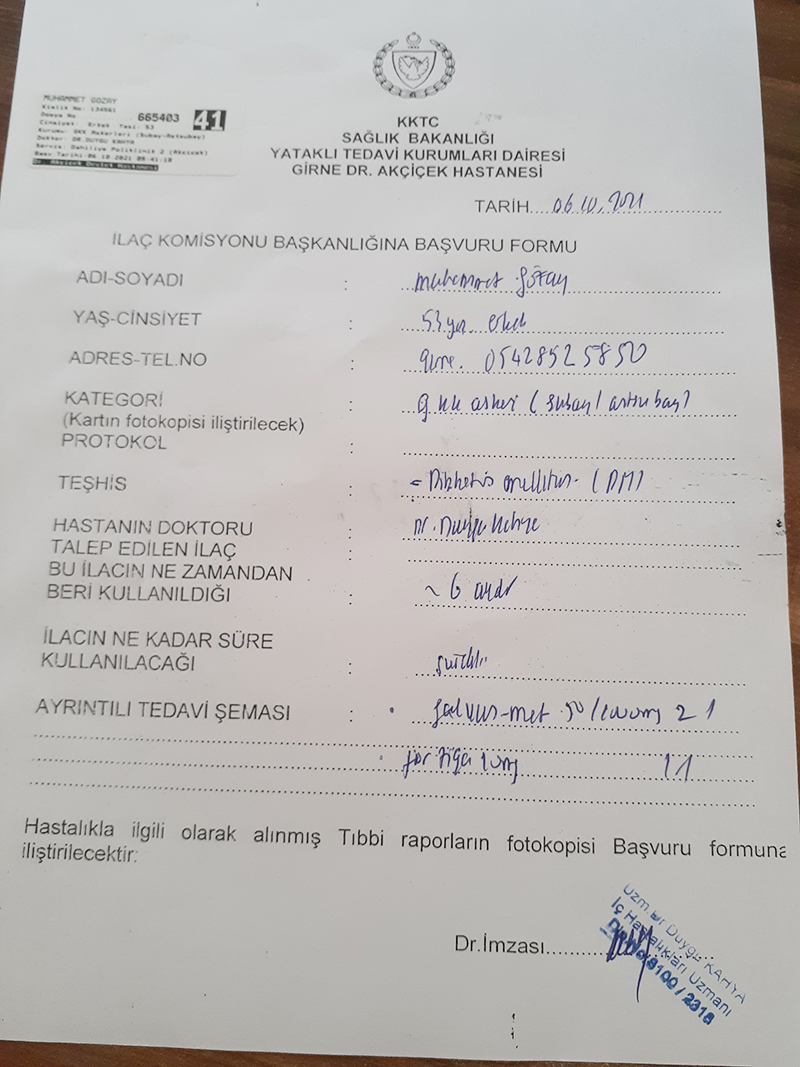 MUHAMMET GOZAY
Kimlik No: 134561
Dosya No 665403 41
Cinsiyet: Erkek Yasi: 53
Kurumu: GKK Askerleri (Subay-Astsubay)
Doktor: DR.DUYGU KAHYA
Servis: Dahiliye Poliklinik 2 (Akcicek)
Basv Tarihi:06.10.2021 08:41:10
Dr. Akcicek Devlet Hastanesi
KKTC
SAĞLIK BAKANLIĞI
YATAKLI TEDAVİ KURUMLARI DAİRESİ
GİRNE DR. AKÇİÇEK HASTANESİ
TARİH....06.10.2021
İLAÇ KOMİSYONU BAŞKANLIĞINA BAŞVURU FORMU
ADI-SOYADI : Muhammet Gözay
YAŞ-CİNSİYET : 53 yaş erkek
ADRES-TEL.NO : Girne. 05428525850
KATEGORİ : GKK askeri (subay/astsubay)
(Kartın fotokopisi iliştirilecek)
PROTOKOL :
TEŞHİS : Diabetis mellitus (DM)
HASTANIN DOKTORU : Dr. Duygu Kahya
TALEP EDİLEN İLAÇ :
BU İLACIN NE ZAMANDAN
BERİ KULLANILDIĞI : ~ 6 aydır
İLACIN NE KADAR SÜRE
KULLANILACAĞI : sürekli
AYRINTILI TEDAVİ ŞEMASI : galvus-met 50/1000mg 2x1
forziga 10mg 1x1
Hastalıkla ilgili olarak alınmış Tıbbi raporların fotokopisi Başvuru formuna
iliştirilecektir:
Dr.İmzası
Uzm Dr Duygu KAHYA
İç Hastalıkları Uzmanı